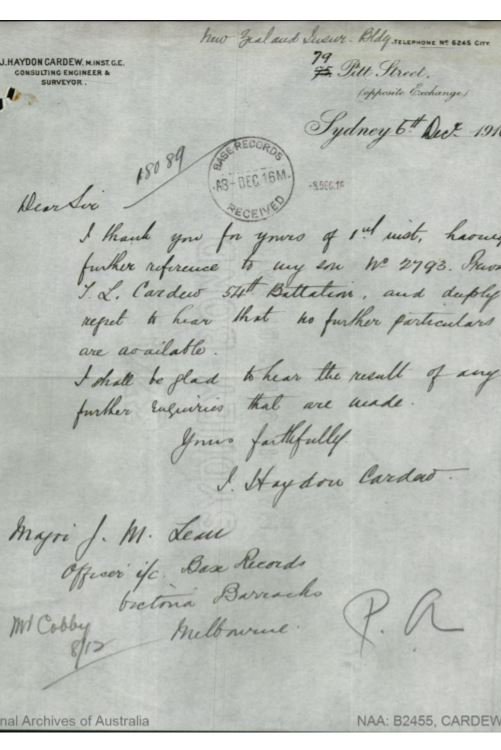 New Zealand Insur. Bldg. TELEPHONE Nº 6245 CITY.
J. HAYDON CARDEW, M.INST.C.E.
CONSULTING ENGINEER &
SURVEYOR.
79
Pitt Street.
(opposite Exchange)
Sydney 6th Decr 191
18089
BASE RECORDS
A3-DEC 16 M.
RECEIVED
-8.DEC.16
Dear Sir
I thank you for yours of 1st inst, having
further reference to my son Nº 2793. Private
J. L. Cardew 54th Battalion, and deeply
regret to hear that no further particulars
are available.
I shall be glad to hear the result of any
further enquiries that are made.
Yours faithfully
J. Haydon Cardew.
Major J. M. Lean
Officer i/c. Base Records
Victoria Barracks
Melbourne.
Mr Cobby
8/12
P. A
nal Archives of Australia
NAA: B2455, CARDEW